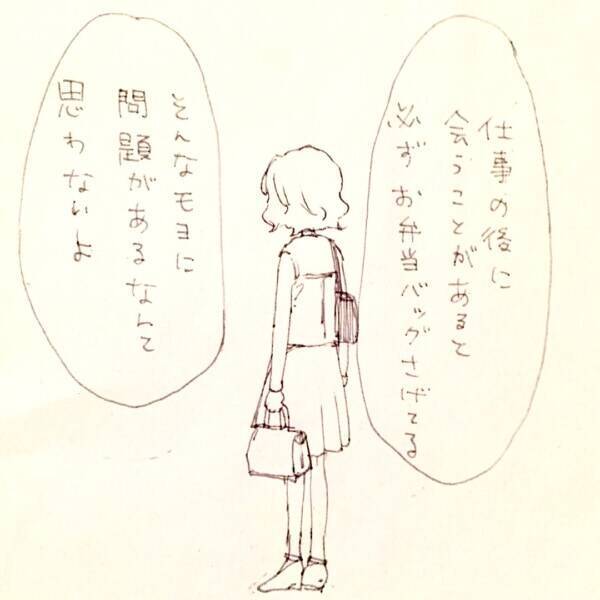 仕事の後に
会うことがあると
必ずお弁当バッグさげてる
そんなモヨに
問題があるなんて
思わないよ